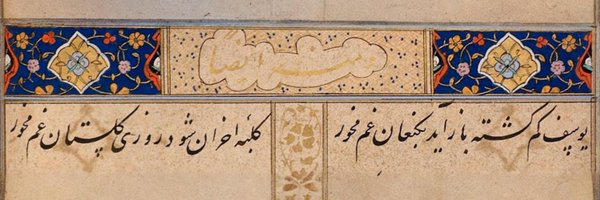 و منه ایضاً
یوسف گم گشته باز آید بکنعان غم مخور
کلبهٔ احزان شود روزی گلستان غم مخور